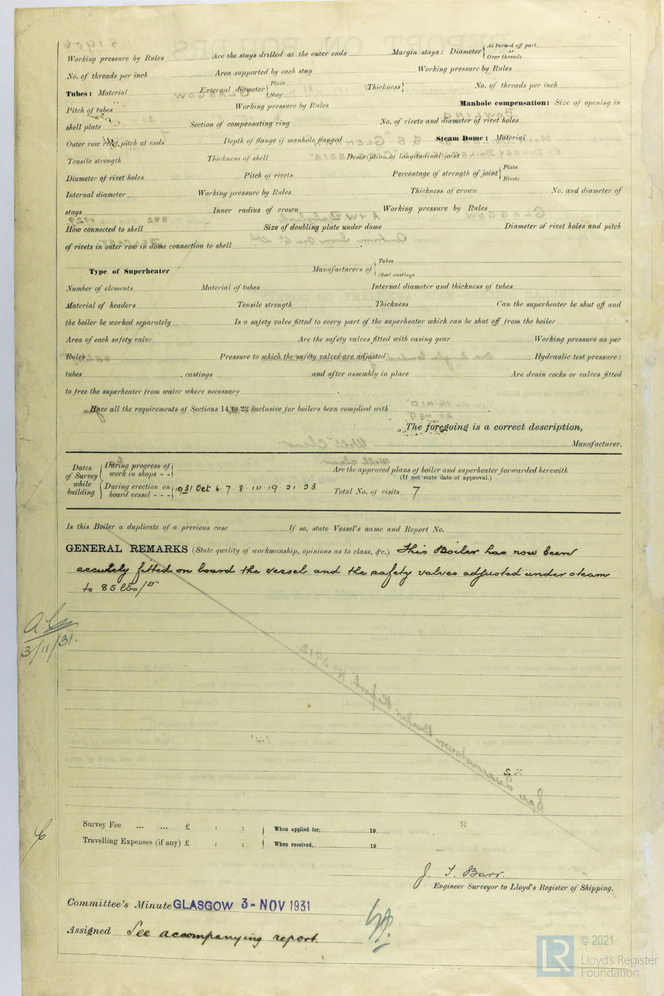 Working pressure by Rules Are the stays drilled at the outer ends Margin stays: Diameter { At turned off part, or Over threads
No. of threads per inch Area supported by each stay Working pressure by Rules
Tubes: Material External diameter { Plain Stay Thickness { No. of threads per inch
Pitch of tubes Working pressure by Rules Manhole compensation: Size of opening in
shell plate Section of compensating ring No. of rivets and diameter of rivet holes
Outer row rivet pitch at ends Depth of flange if manhole flanged Steam Dome: Material
Tensile strength Thickness of shell Description of longitudinal joint
Diameter of rivet holes Pitch of rivets Percentage of strength of joint { Plate Rivets
Internal diameter Working pressure by Rules Thickness of crown No. and diameter of
stays Inner radius of crown Working pressure by Rules
How connected to shell Size of doubling plate under dome Diameter of rivet holes and pitch
of rivets in outer row in dome connection to shell
Type of Superheater Manufacturers of { Tubes Steel castings
Number of elements Material of tubes Internal diameter and thickness of tubes
Material of headers Tensile strength Thickness Can the superheater be shut off and
the boiler be worked separately Is a safety valve fitted to every part of the superheater which can be shut off from the boiler
Area of each safety valve Are the safety valves fitted with easing gear Working pressure as per
Rules Pressure to which the safety valves are adjusted Hydraulic test pressure:
tubes , castings and after assembly in place Are drain cocks or valves fitted
to free the superheater from water where necessary
Have all the requirements of Sections 14 to 22 inclusive for boilers been complied with
The foregoing is a correct description,
Manufacturer.
Dates of Survey while building { During progress of work in shops - - } Are the approved plans of boiler and superheater forwarded herewith
(If not state date of approval.)
{ During erection on board vessel - - - } 1931 Oct 6. 7. 8. 10. 19. 21. 23 Total No. of visits 7
Is this Boiler a duplicate of a previous case If so, state Vessel's name and Report No.
GENERAL REMARKS (State quality of workmanship, opinions as to class, &c.) This Boiler has now been
securely fitted on board the vessel and the safety valves adjusted under steam
to 85 lbs/□"
3/11/31.
Survey Fee ... ... £ : : When applied for, 19
Travelling Expenses (if any) £ : : When received, 19
J. T. Barr.
Engineer Surveyor to Lloyd's Register of Shipping.
Committee's Minute GLASGOW 3-NOV 1931
Assigned See accompanying report.
LR © 2021
Lloyd's Register
Foundation